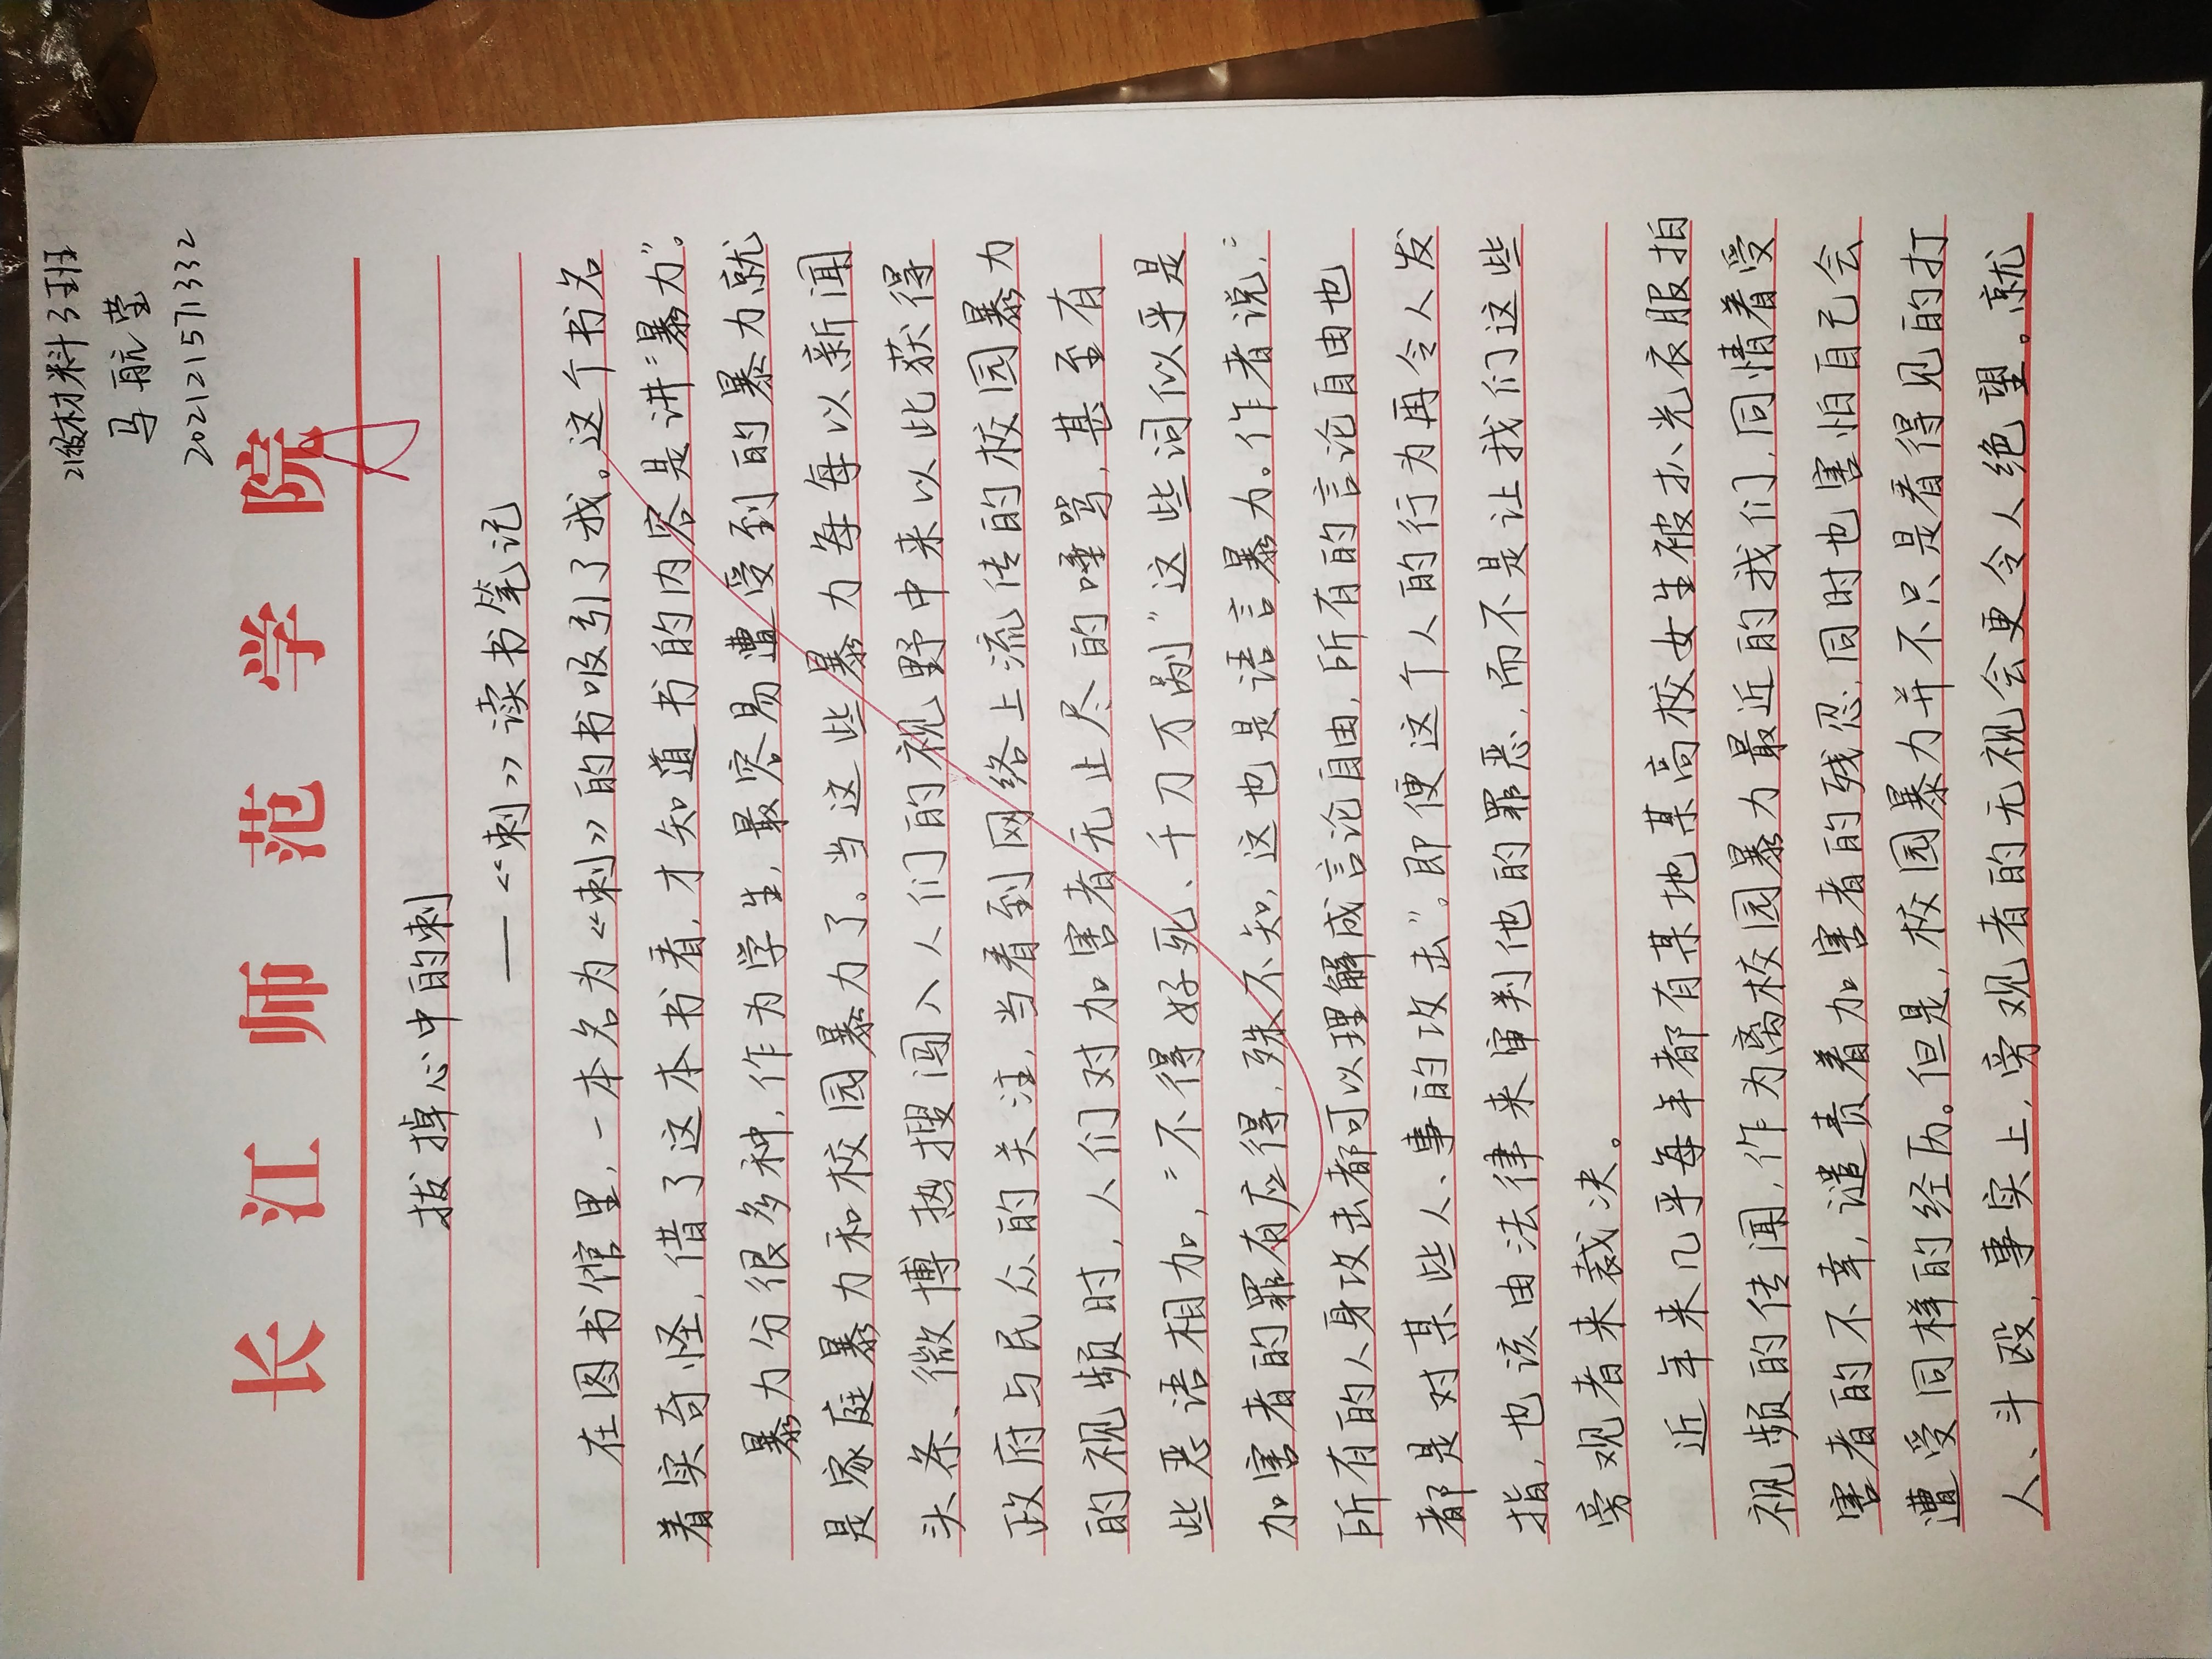 21级材料3班
马航莹
20212157 1332
长江师范学院
拔掉心中的刺
——《刺》读书笔记
在图书馆里,一本名为《刺》的书吸引了我。这个书名
着实奇怪,借了这本书看,才知道书的内容是讲“暴力”。
暴力分很多种,作为学生,最容易遭受到的暴力就
是家庭暴力和校园暴力了。当这些暴力每每以新闻
头条、微博热搜闯入人们的视野中来以此获得
政府与民众的关注,当看到网络上流传的校园暴力
的视频时,人们对加害者无止尽的唾骂,甚至有
些恶语相加,“不得好死、千刀万剐”这些词似乎是
加害者的罪有应得,殊不知,这也是语言暴力。作者说,“
所有的人身攻击都可以理解成言论自由,所有的言论自由也
都是对某些人、事的攻击”。即便这个人的行为再令人发
指,也该由法律来审判他的罪恶,而不是让我们这些
旁观者来裁决。
近年来几乎每年都有某地某高校女生被扒光衣服拍
视频的传闻,作为离校园暴力最近的我们,同情着受
害者的不幸,谴责着加害者的残忍,同时也害怕自己会
遭受同样的经历。但是,校园暴力并不只是看得见的打
人、斗殴,事实上,旁观者的无视会更令人绝望。就